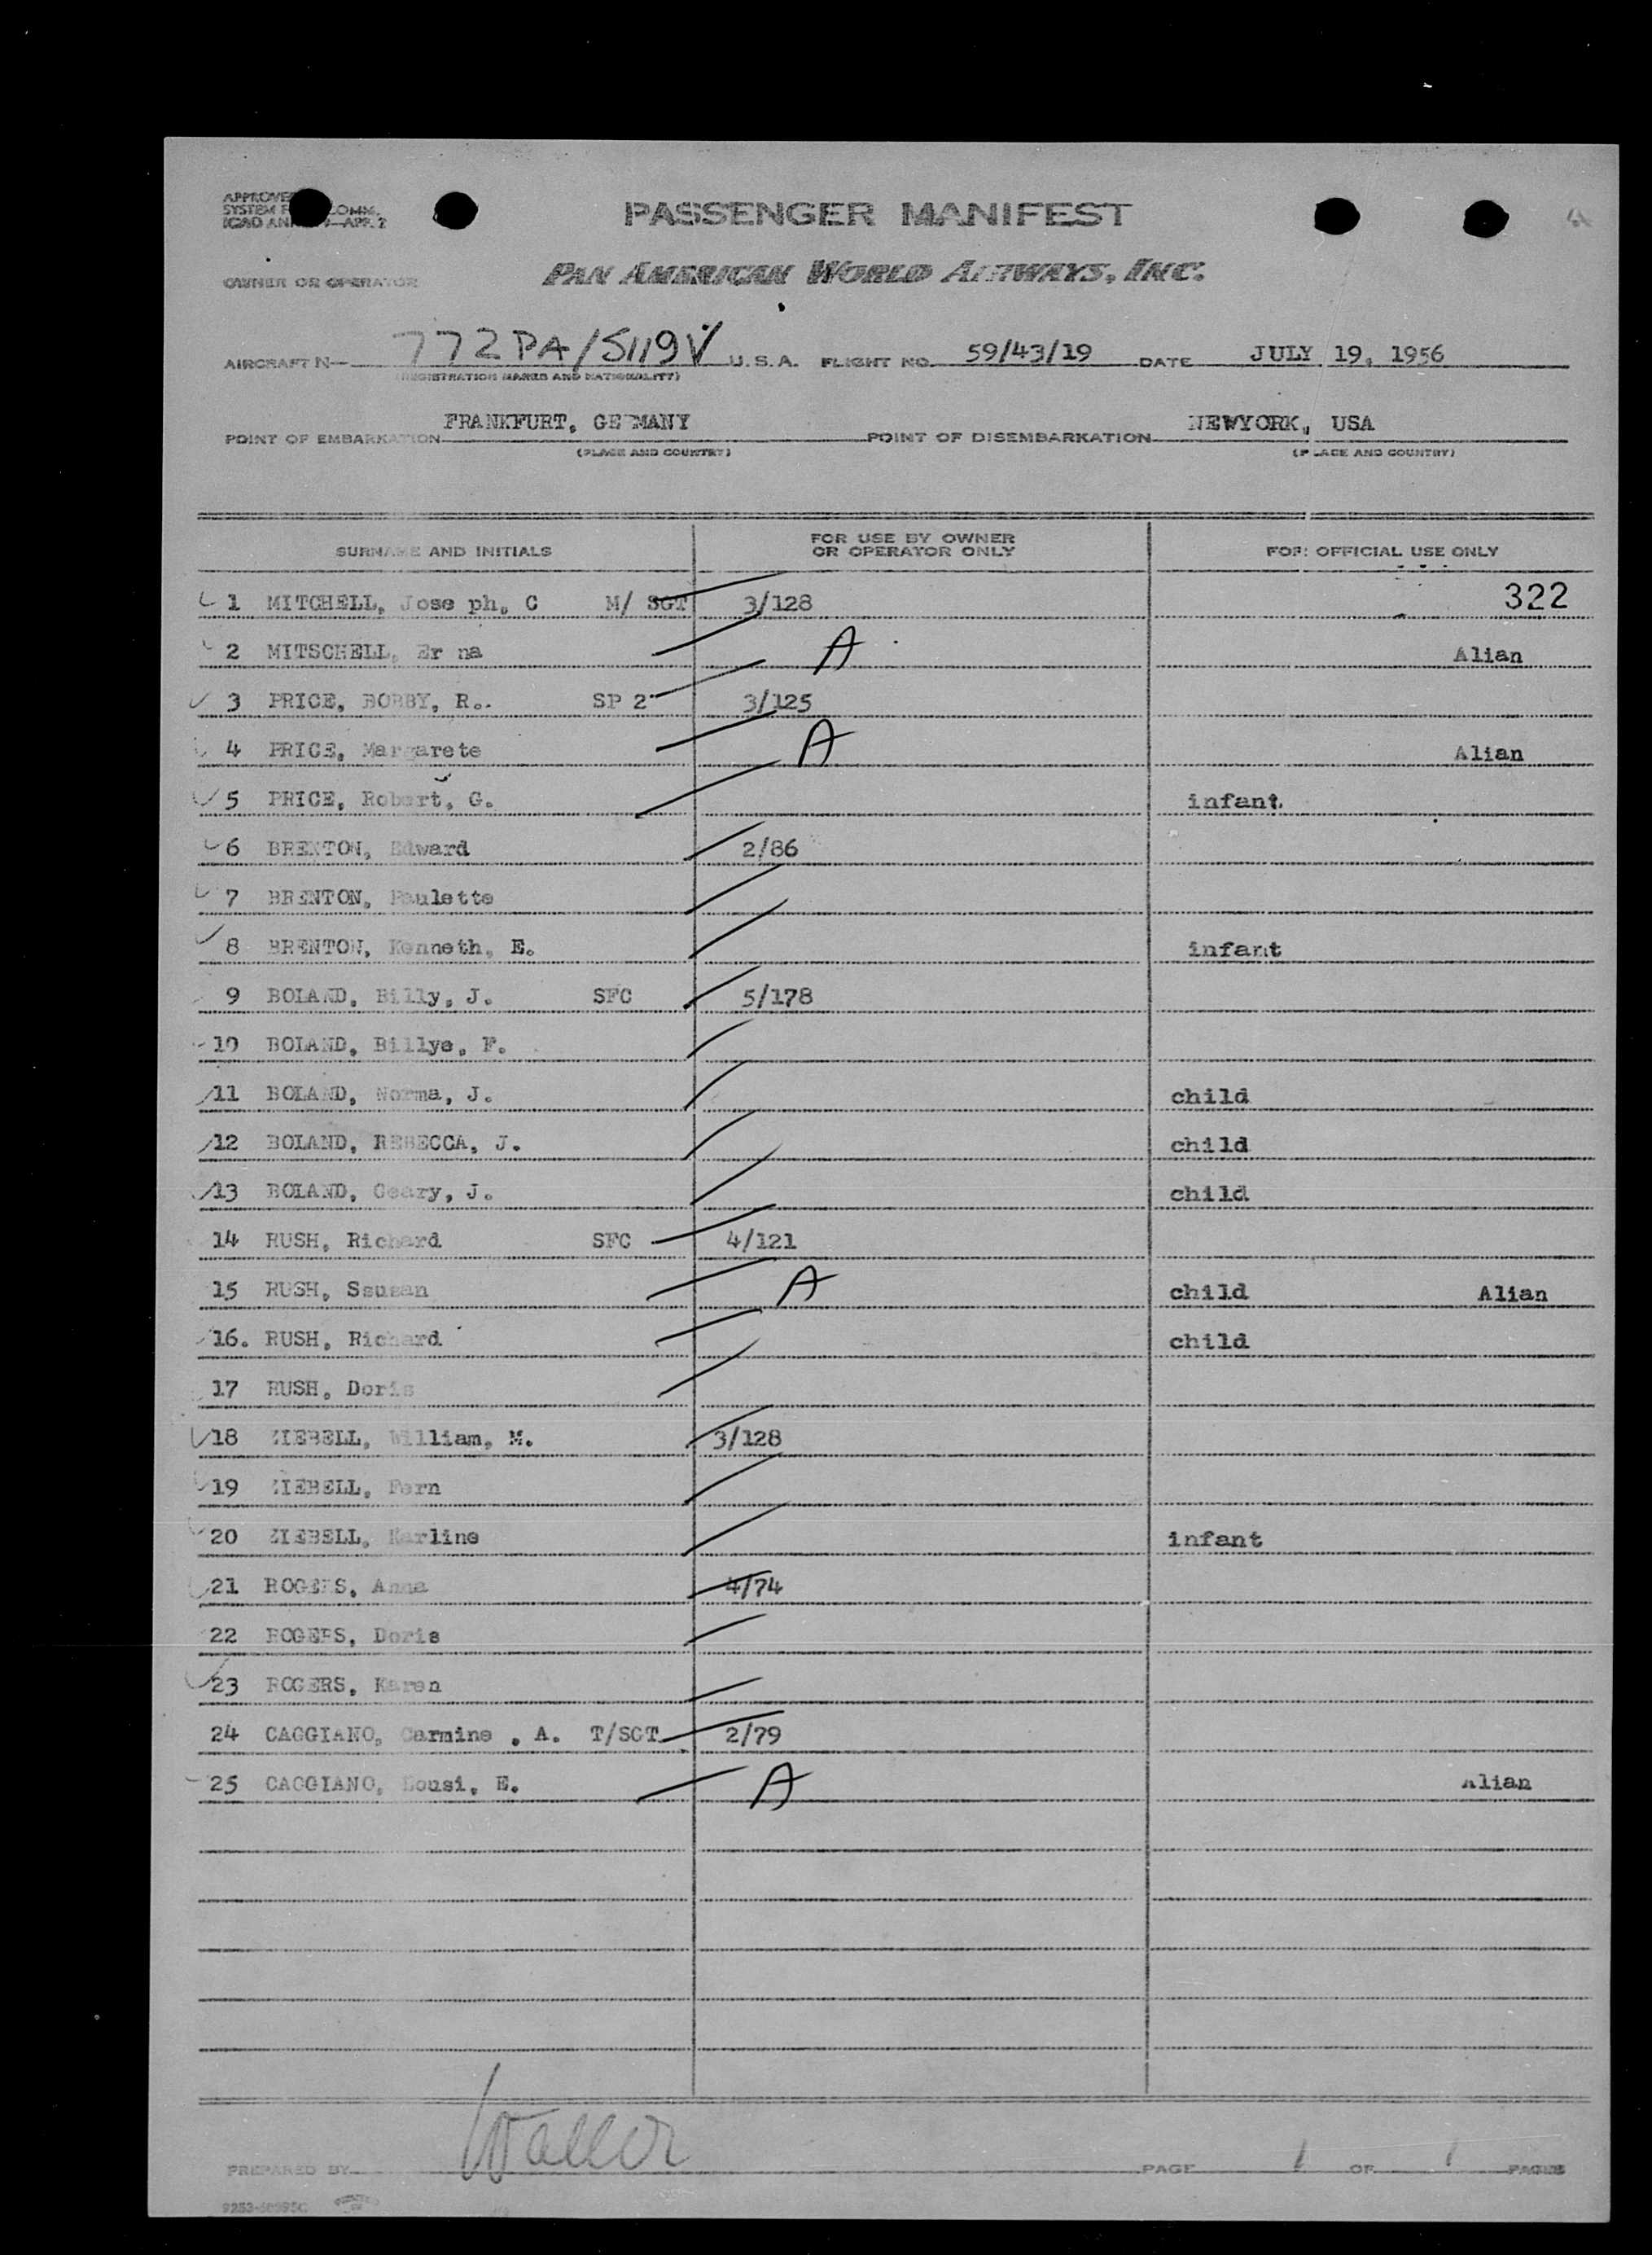 PASSENGER MANIFEST
OWNER OR OPERATOR PAN AMERICAN WORLD AIRWAYS, INC.
AIRCRAFT N— 772PA/5119V U.S.A. FLIGHT NO. 59/43/19 DATE JULY 19, 1956
(REGISTRATION MARKS AND NATIONALITY)
POINT OF EMBARKATION FRANKFURT, GERMANY POINT OF DISEMBARKATION NEWYORK, USA
(PLACE AND COUNTRY) (PLACE AND COUNTRY)
SURNAME AND INITIALS FOR USE BY OWNER OR OPERATOR ONLY FOR OFFICIAL USE ONLY
1 MITCHELL, Jose ph, C M/ SGT 3/128 322
2 MITSCHELL, Er na A Alian
3 PRICE, BOBBY, R.. SP 2 3/125
4 PRICE, Margarete A Alian
5 PRICE, Robert, G. infant
6 BRENTON, Edward 2/86
7 BRENTON, Paulette
8 BRENTON, Kenneth, E. infant
9 BOLAND, Billy, J. SFC 5/178
10 BOLAND, Billye, F.
11 BOLAND, Norma, J. child
12 BOLAND, REBECCA, J. child
13 BOLAND, Geary, J. child
14 RUSH, Richard SFC 4/121
15 RUSH, Ssusan A child Alian
16. RUSH, Richard child
17 RUSH, Doris
18 ZIEBELL, William, M. 3/128
19 ZIEBELL, Fern
20 ZIEBELL, Karline infant
21 ROGERS, Anna 4/74
22 ROGERS, Doris
23 ROGERS, Karen
24 CAGGIANO, Carmine , A. T/SGT 2/79
25 CAGGIANO, Lousi, E. A Alian
PREPARED BY Waller PAGE 1 OF 1 PAGES